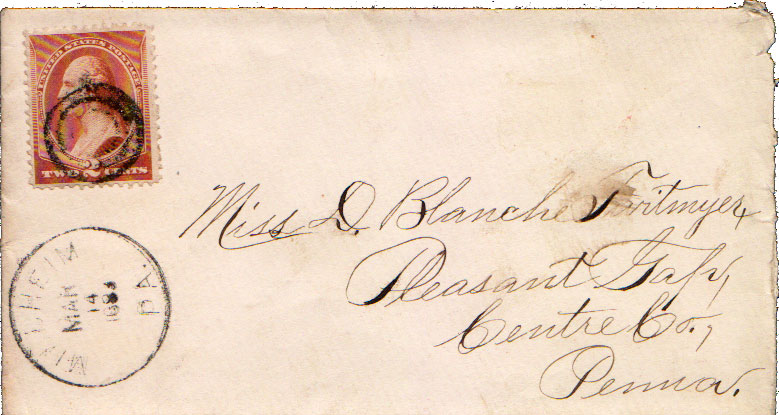 UNITED STATES POSTAGE
TWO 2 CENTS
Miss D. Blanche Twitmyer,
Pleasant Gap,
Centre Co.,
Penna.
MILLHEIM
PA
MAR
14